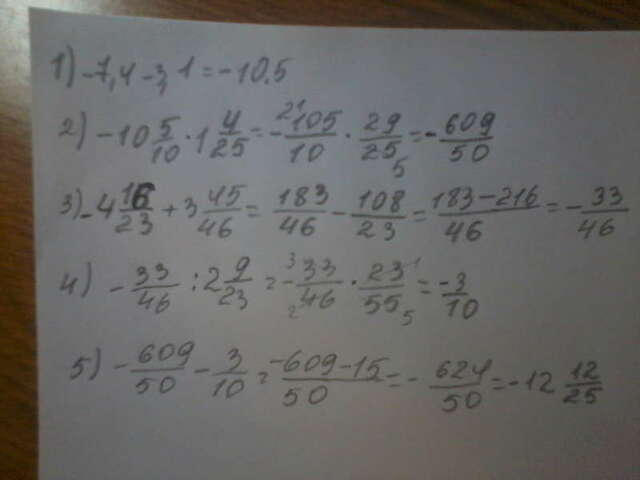 1) -7,4 -3,1 = -10.5
2) -10 5/10 · 1 4/25 = - 21 105/10 · 29/25 5 = - 609/50
3) -4 16/23 + 3 45/46 = 183/46 - 108/23 = 183-216/46 = - 33/46
4) - 33/46 : 2 9/23 = - 3 33/46 2 · 23 1/55 5 = -3/10
5) - 609/50 - 3/10 = -609-15/50 = - 624/50 = -12 12/25